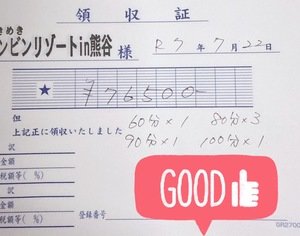 領収証
きめき
ンビンリゾートin熊谷 様 R7年7月22日
★ ¥76500-
但 60分×1 80分×3
上記正に領収いたしました
90分×1 100分×1
訳
金額
税額等( %)
訳
金額
税額等( %)
登録番号
GOOD
GR2700